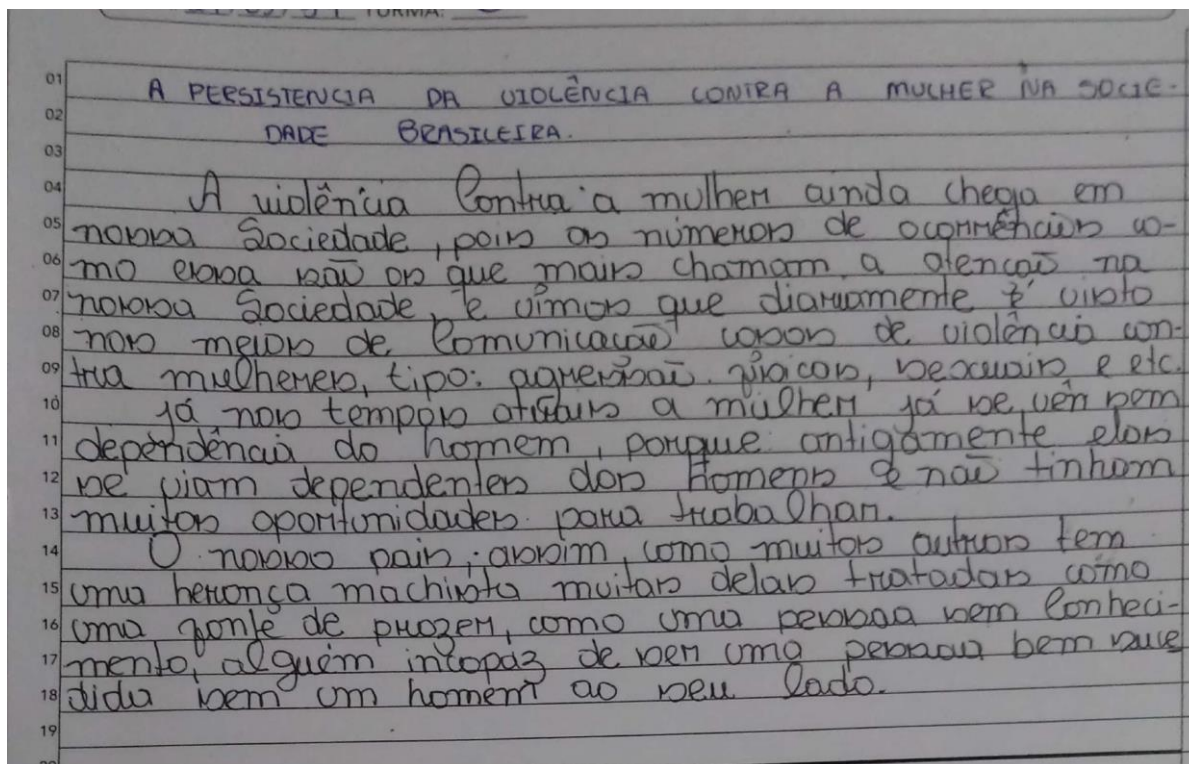 TURMA:
01
A PERSISTENCIA DA VIOLÊNCIA CONTRA A MULHER NA SOCIE-
02
DADE BRASILEIRA.
03
04 A violência Contra a mulher ainda chega em
05 nossa Sociedade, pois os números de ocorrências co-
06 mo essa são os que mais chamam a atenção na
07 nossa Sociedade, e vimos que diariamente é visto
08 nos meios de Comunicação casos de violência con-
09 tra mulheres, tipo: agressão fisicas, sexuais e etc.
10 já nos tempos atuais a mulher já se vên sem
11 dependência do homem, porque antigamente elas
12 se viam dependentes dos Homens e não tinham
13 muitas oportunidades para trabalhar.
14 O nosso pais, assim, como muitos outros tem
15 uma herança machista muitas delas tratadas como
16 uma fonte de prazer, como uma pessoa sem Conheci-
17 mento, alguém incapaz de ser uma pessoa bem suce
18 dida sem um homem ao seu lado.
19